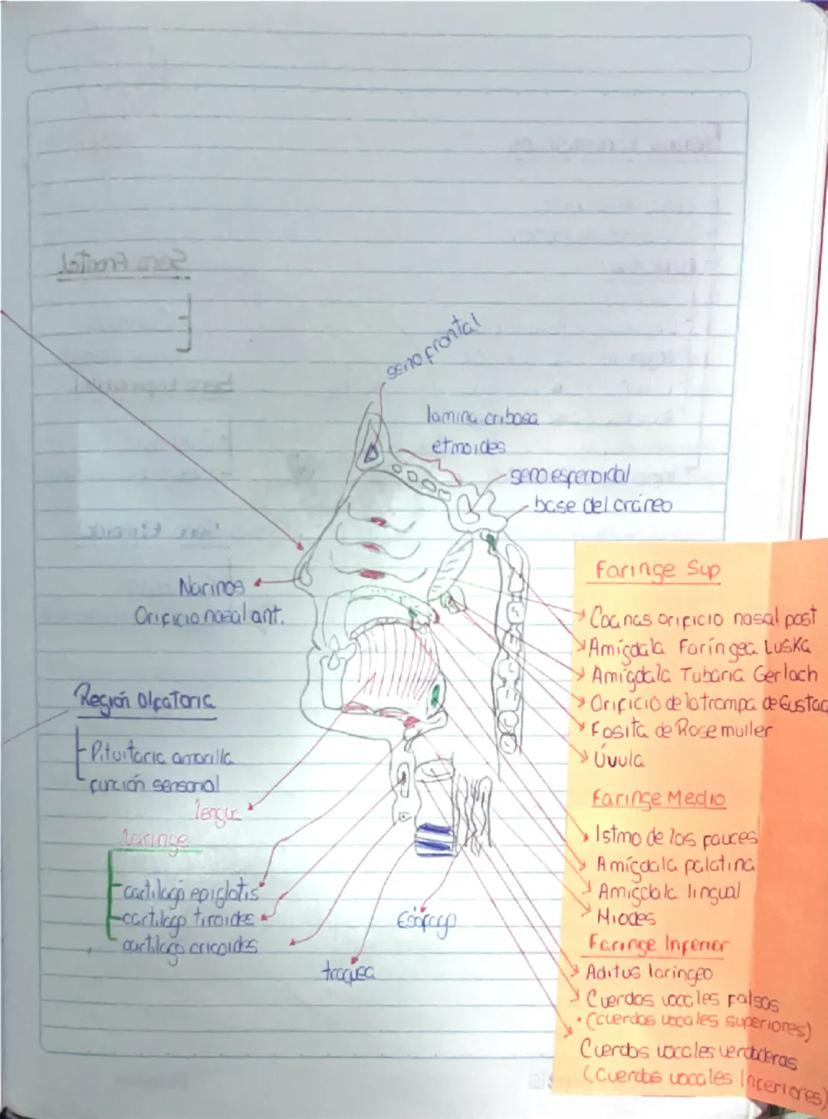 seno frontal
lamina cribosa
etmoides
seno esfenoidal
base del cráneo
Narinas
Orificio nasal ant.
Región Olfatoria
Pituitaria amarilla
función sensorial
lengua
laringe
cartilago epiglotis
cartilago tiroides
cartilago cricoides
Esófago
traquea
Faringe Sup
Coanas orificio nasal post
Amígdala Faríngea Luska
Amígdala Tubaria Gerlach
Orificio de la trompa de Eustaq
Fosita de Rosemuller
Úvula
Faringe Medio
Istmo de las fauces
Amigdala palatina
Amigdala lingual
Faringe Inferior
Aditus laringeo
Cuerdas vocales falsas
(cuerdas vocales superiores)
Cuerdas vocales verdaderas
(cuerdas vocales Inferiores)